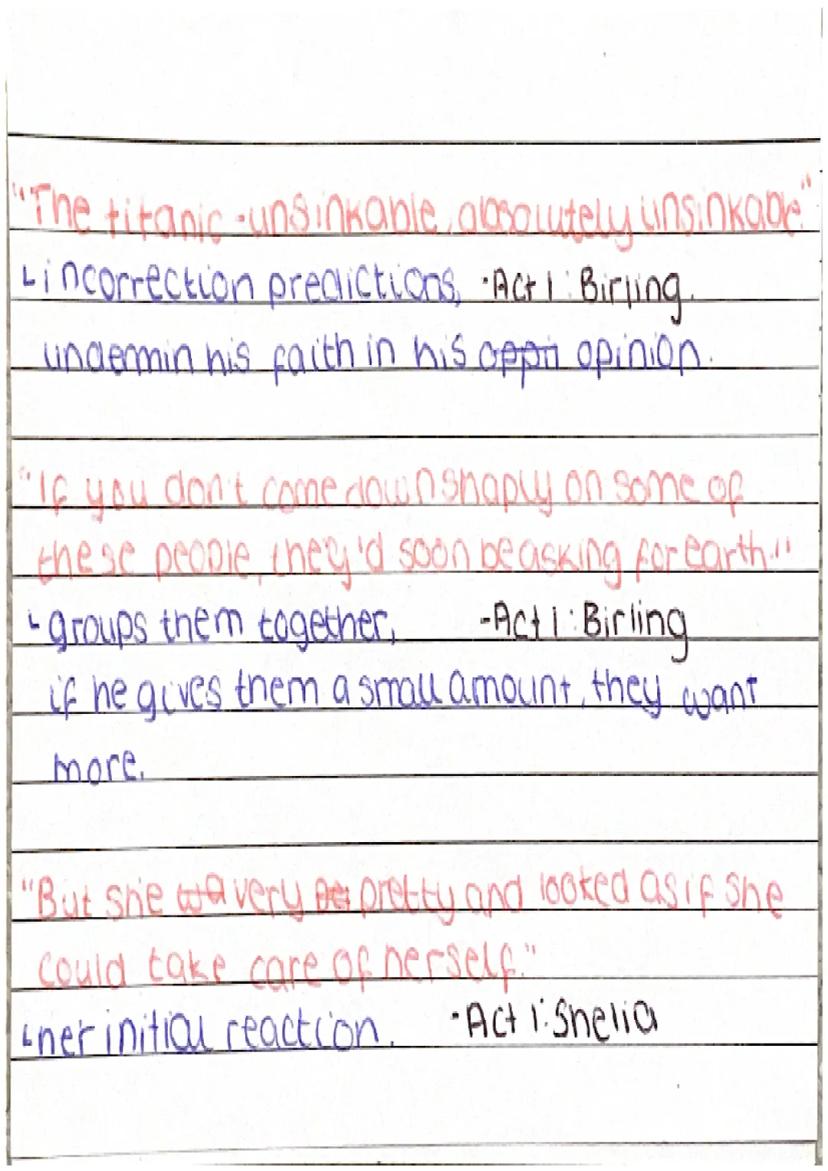 "The titanic - unsinkable, absolutely unsinkable."
↳ incorrection predictions, - Act 1: Birling.
undermin his faith in his oppn opinion.
"If you don't come down shaply on some of
these people, they'd soon be asking for earth."
↳ groups them together, - Act 1: Birling
if he gives them a small amount, they want
more.
"But she very pretty and looked as if she
could take care of herself."
↳ her initial reaction. - Act 1: Shelia